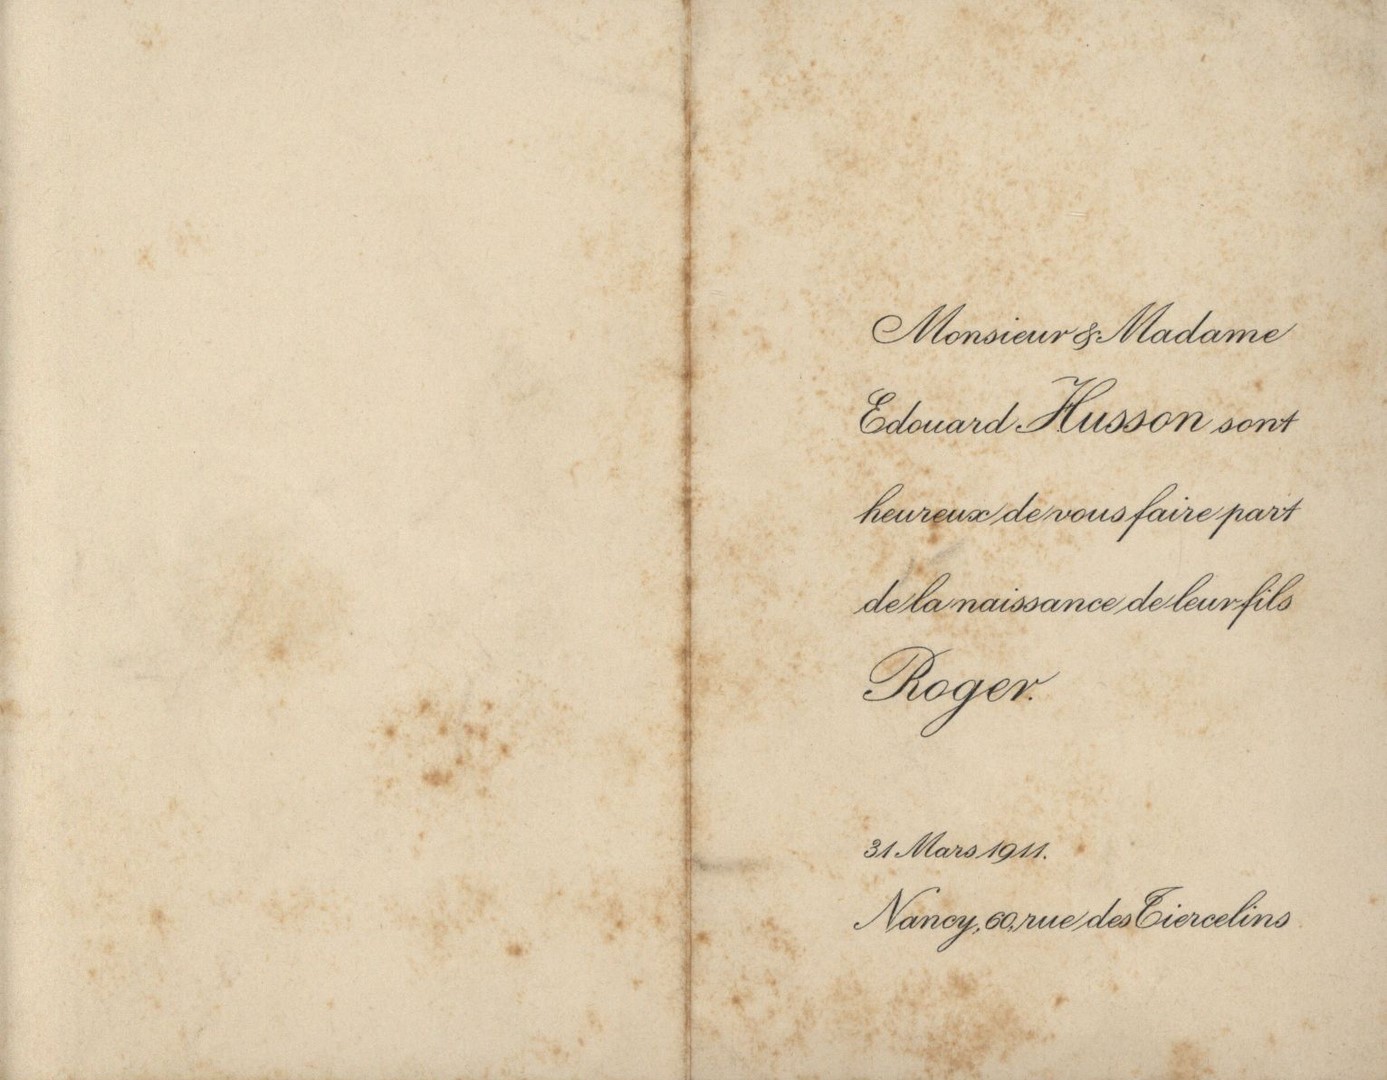 Monsieur & Madame
Edouard Husson sont
heureux de vous faire part
de la naissance de leur fils
Roger.
31 Mars 1911.
Nancy, 60, rue des Tiercelins